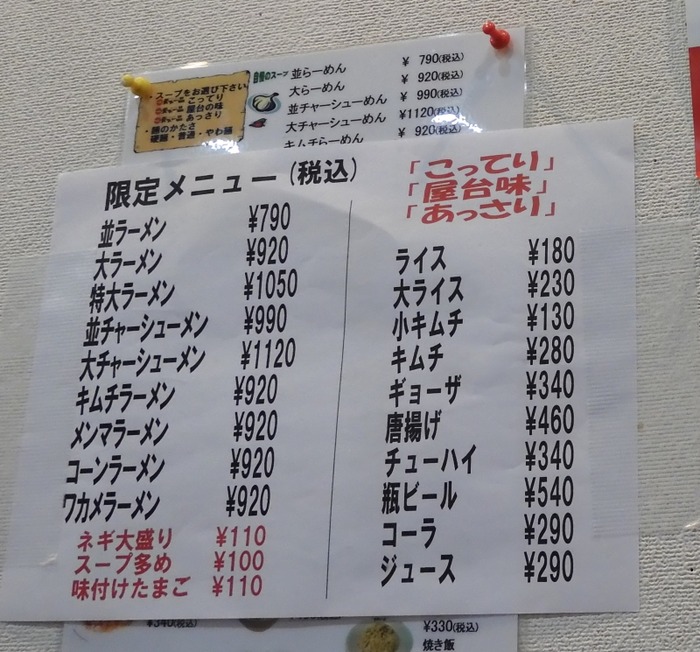 ・スープをお選び下さい
こってり
屋台の味
あっさり
・麺のかたさ
硬麺・普通・やわ麺
自慢のスープ
並らーめん ¥ 790(税込)
大らーめん ¥ 920(税込)
並チャーシューめん ¥ 990(税込)
大チャーシューめん ¥1120(税込)
キムチらーめん ¥ 920(税込)
限定メニュー(税込)
並ラーメン ¥790
大ラーメン ¥920
特大ラーメン ¥1050
並チャーシューメン ¥990
大チャーシューメン ¥1120
キムチラーメン ¥920
メンマラーメン ¥920
コーンラーメン ¥920
ワカメラーメン ¥920
ネギ大盛り ¥110
スープ多め ¥100
味付けたまご ¥110
「こってり」
「屋台味」
「あっさり」
ライス ¥180
大ライス ¥230
小キムチ ¥130
キムチ ¥280
ギョーザ ¥340
唐揚げ ¥460
チューハイ ¥340
瓶ビール ¥540
コーラ ¥290
ジュース ¥290
¥340(税込)
¥330(税込)
焼き飯